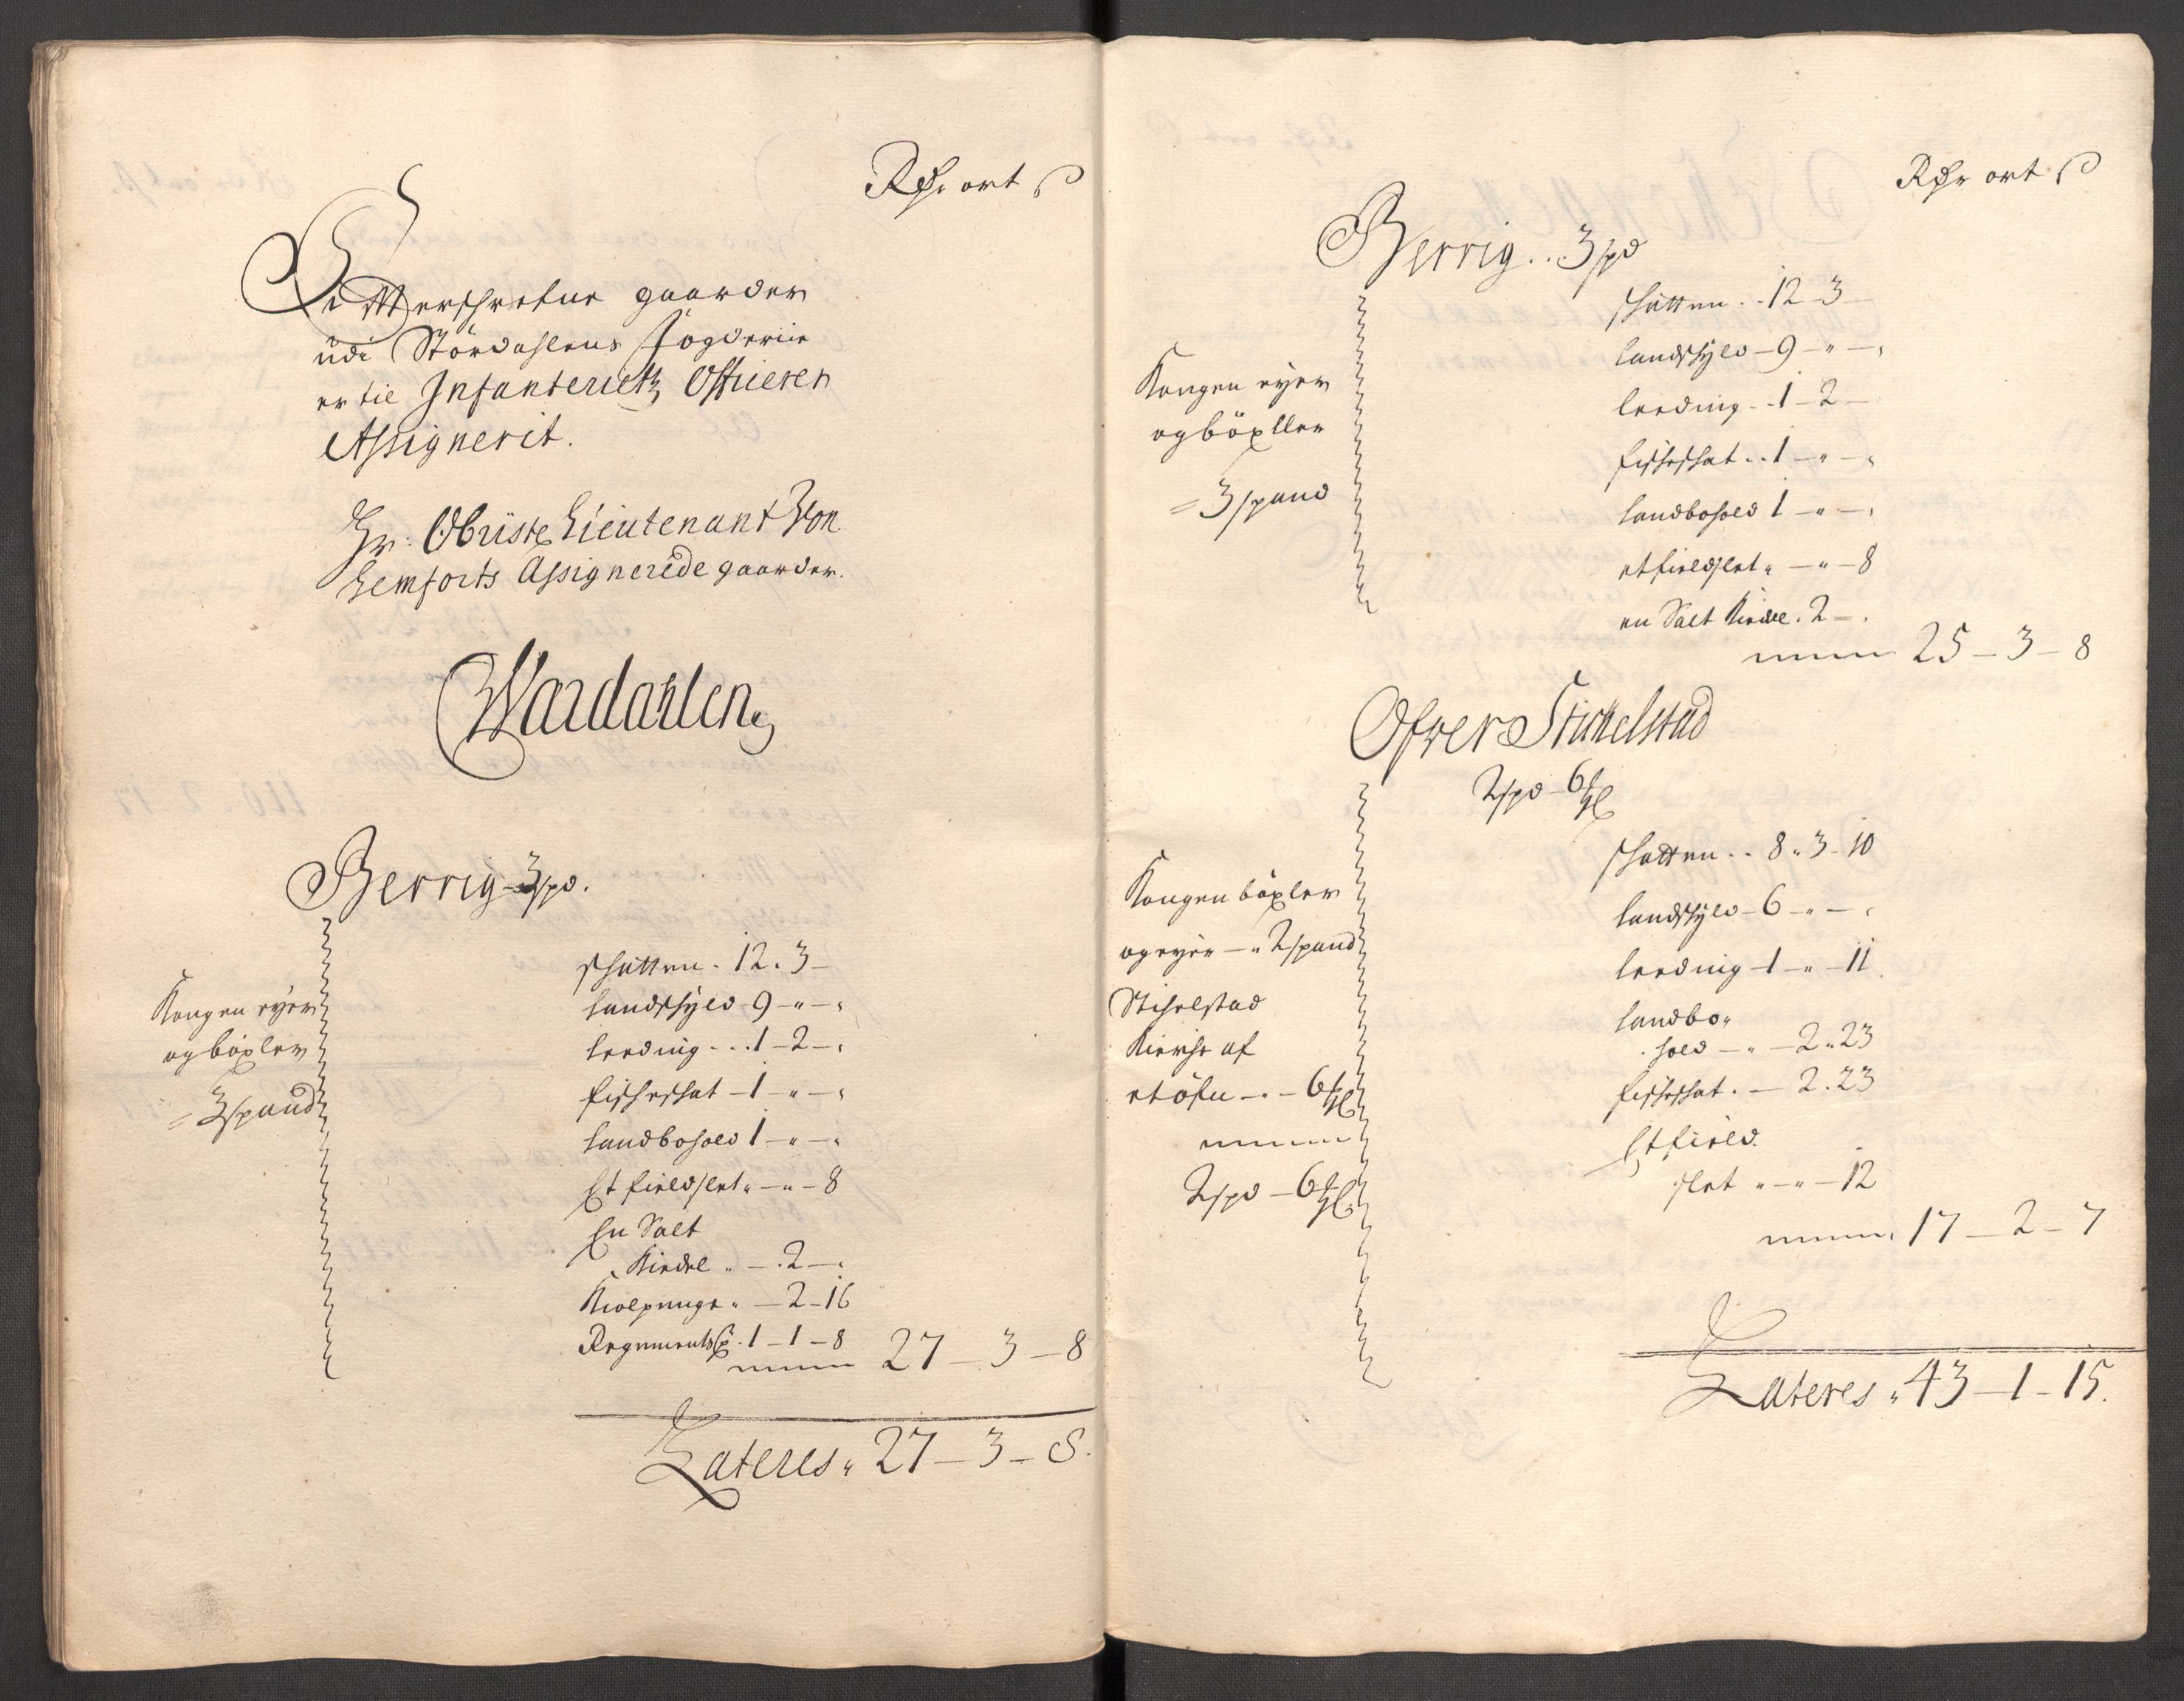 Rdr ort ß
Efftterschrefne gaarder
udi Stördahlens fögderiie
er til Infanteriets Officerer
Assignerit.
Hr: Obriste Lieutenant Von
Lemforts Assignerede gaarder.
Wardahlen
Berrig - 3 spd.
Kongen eyer
og böxler
= 3 spand
schatten . 12 . 3 -
landschyld - 9 - " - "
leeding - . . 1 - 2 - "
fischeschat - 1 - " - "
landbohold 1 - " - "
Et fieldslet " - " - 8
En Salt
Kiedel " - . 2 - "
Kiolpenge " - 2 - 16
Regimentsß . 1 - 1 - 8 27 - 3 - 8
Lateres " 27 - 3 - 8.
Rdr ort ß
Berrig . . 3 spd
Kongen eyer
og böxller
= 3 spand
schatten . . 12 - 3 -
landschyld - 9 - " - "
leeding - . 1 - 2 -
fischeschat . . 1 - " - "
landbohold 1 - " - "
et fieldslet " - " - 8
en Salt Kiedel . 2 - .
25 - 3 - 8
Ofver Stichelstad
2 spd - 6
Kongen böxler
og eyer - " 2 spand
Stichelstad
Kierche af
- " - 6
2 spd - 6
schatten . . 8 " 3 - 10
landschyld - 6 - " - "
leeding - 1 - " - 11.
landbo"
hold - " - 2 " 23
fischeschat . - 2 . 23
Et field
slet " - " - 12
17 - 2 - 7
Lateres " 43 - 1 - 15.